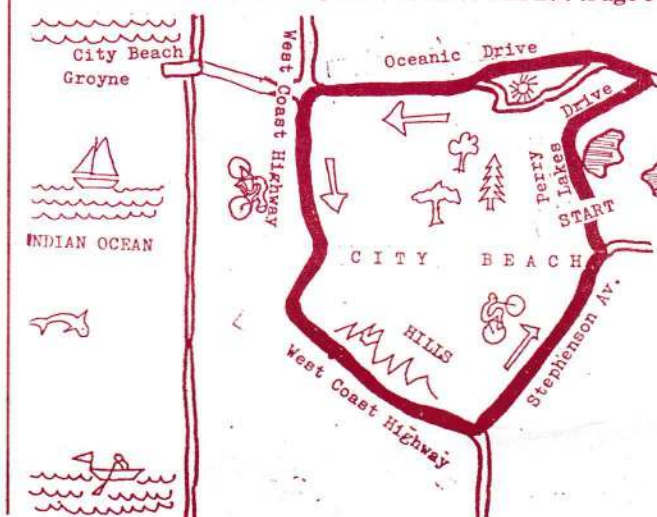 City Beach
Groyne
West Coast Highway
Oceanic Drive
Perry Lakes
Drive
START
INDIAN OCEAN
CITY BEACH
HILLS
West Coast Highway
Stephenson Av.